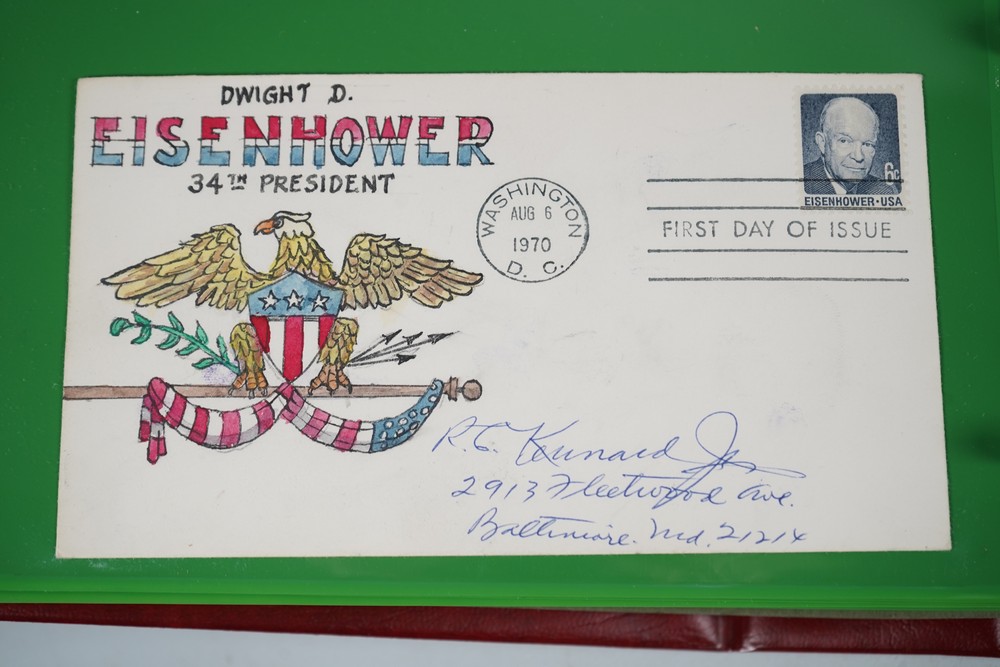 DWIGHT D.
EISENHOWER
34TH PRESIDENT
WASHINGTON
AUG 6
1970
D. C.
6c
EISENHOWER·USA
FIRST DAY OF ISSUE
R. C. Kennard Jr.
2913 Fleetwood Ave.
Baltimore. Md. 21214